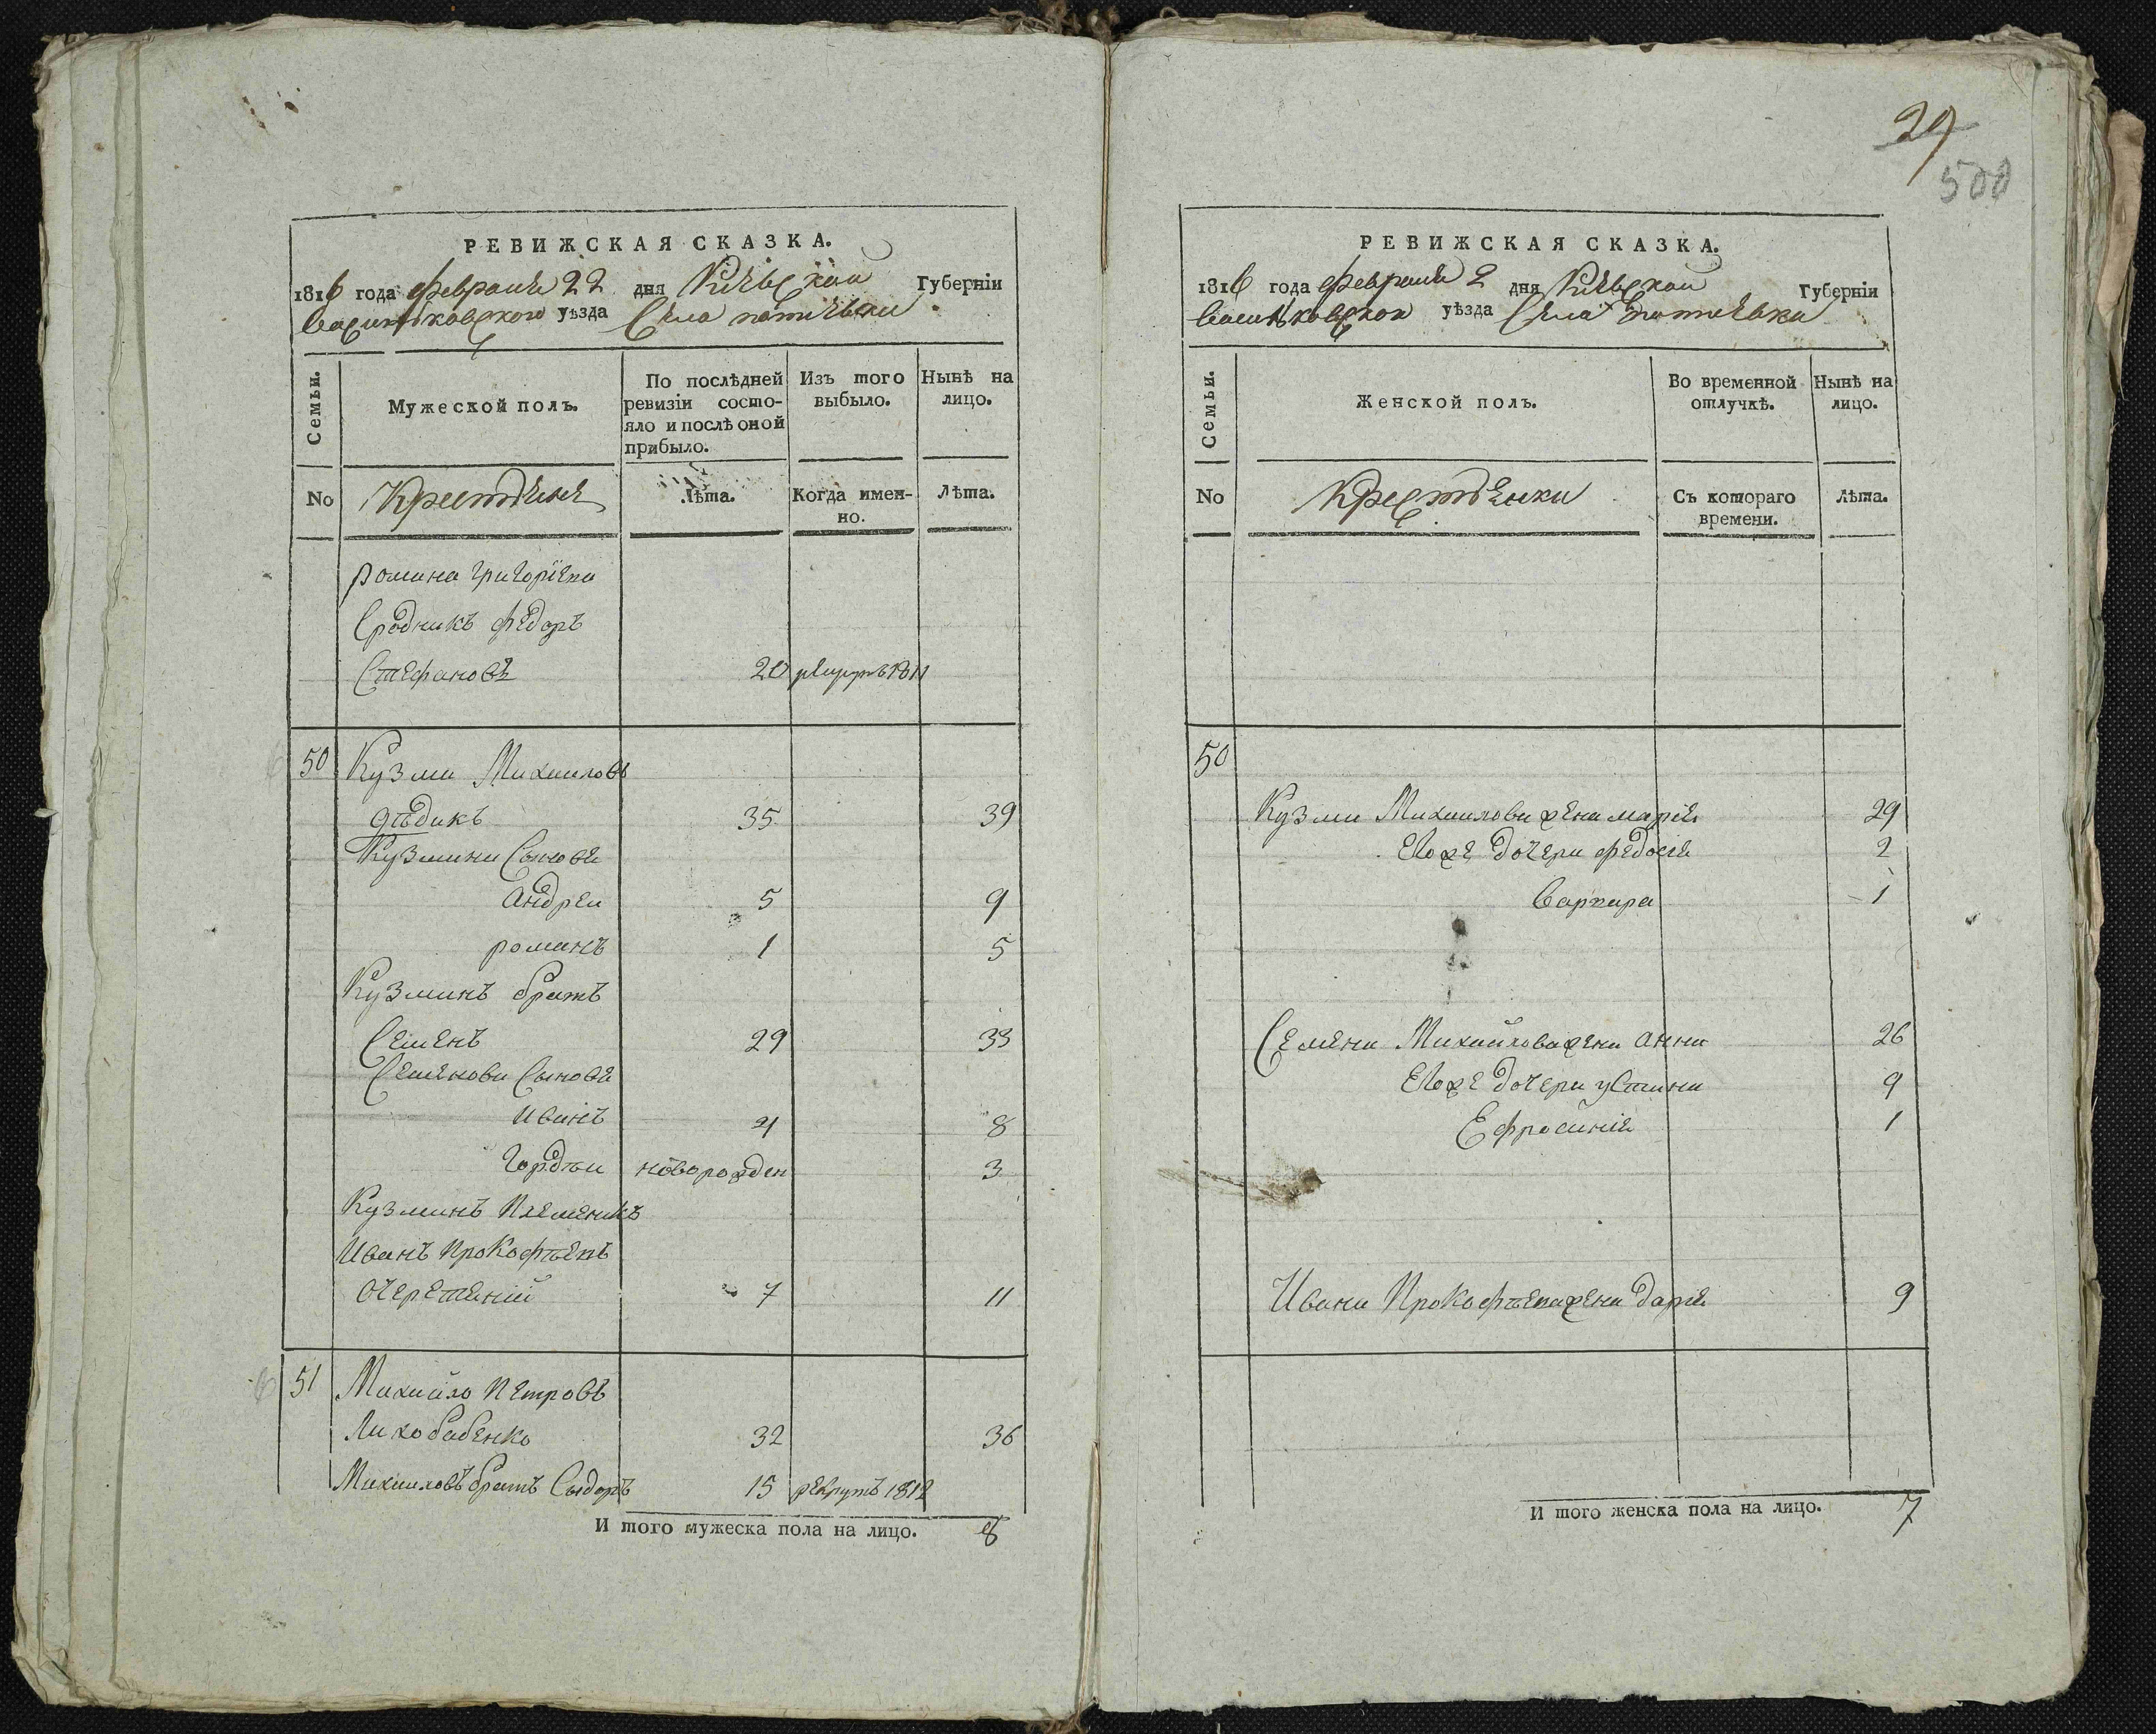 РЕВИЖСКАЯ СКАЗКА.
1816 года февраля 22 дня Кіевской Губерніи
Васильковского уѣзда Села
Семьи.
Мужеской полъ.
По послѣдней ревизіи состо-
яло и послѣ оной
прибыло.
Изъ того
выбыло.
Нынѣ на
лицо.
No
Крестьяне
Лѣта.
Когда имен-
но.
Лѣта.
романа григорієва
Сродникъ федоръ
Стефановъ 20 рекрутъ 1811
50 Кузма Михайловъ
дѣдикъ 35 39
Кузмини Сыновя
Андреи 5 9
романъ 1 5
Кузминъ братъ
Семенъ 29 33
Семенови Сыновя
Иванъ 4 8
Гордѣи новорожден 3
Кузминъ Племеникъ
Иванъ Прокофѣевъ
Очеретяній 7 11
51 Михайло Петровъ
Лихобабенко 32 36
Михаиловъ братъ Сыдоръ 15 рекрутъ 1812
И того мужеска пола на лицо. 8
29
500
РЕВИЖСКАЯ СКАЗКА.
1816 года февраля 2 дня Кіевской Губерніи
Васильковской уѣзда Села
Семьи.
Женской полъ.
Во временной
отлучкѣ.
Нынѣ на
лицо.
No
Крестьянки
Съ котораго
времени.
Лѣта.
50
Кузми Михаилова жена марія 29
Егоже дочери федосія 2
Варвара 1
Семена Михайлова жена Анна 26
Егоже дочери устина 9
Ефросинія 1
Ивана Прокофѣева жена дарія 9
И того женска пола на лицо. 7